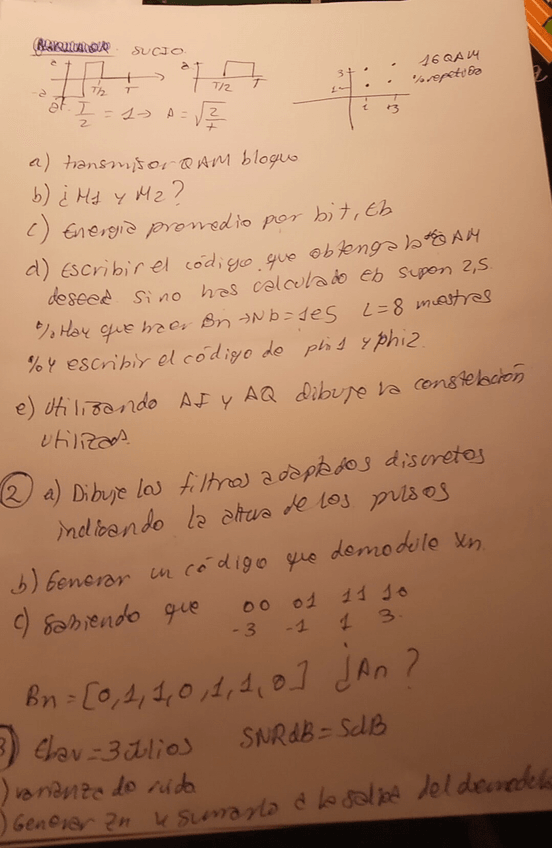 SUCIO
a a
-a T/2 T T/2 T
a². T/2 = 1 → A = √2/T
16 QAM
% repetido
3
1
1 3
a) transmisor QAM bloque
b) ¿M1 y M2?
c) Energia promedio por bit, Eb
d) Escribir el código que obtenga la QAM
deseed si no has calculado Eb supon 2,5.
% Hay que hacer Bn → Nb = 1e5 L = 8 muestras
% Y escribir el código de phi1 y phi2
e) Utilizando AI y AQ dibuje la constelación
utilizada
2 a) Dibuje los filtros adaptados discretos
indicando la altura de los pulsos
b) Generar un código que demodule Xn
c) Sabiendo que 00 01 11 10
-3 -1 1 3
Bn = [0,1,1,0,1,1,0] ¿An?
3) Ebav = 3 Julios SNRdB = 5dB
) varianza de ruido
) Generar Zn y sumarlo a la salida del